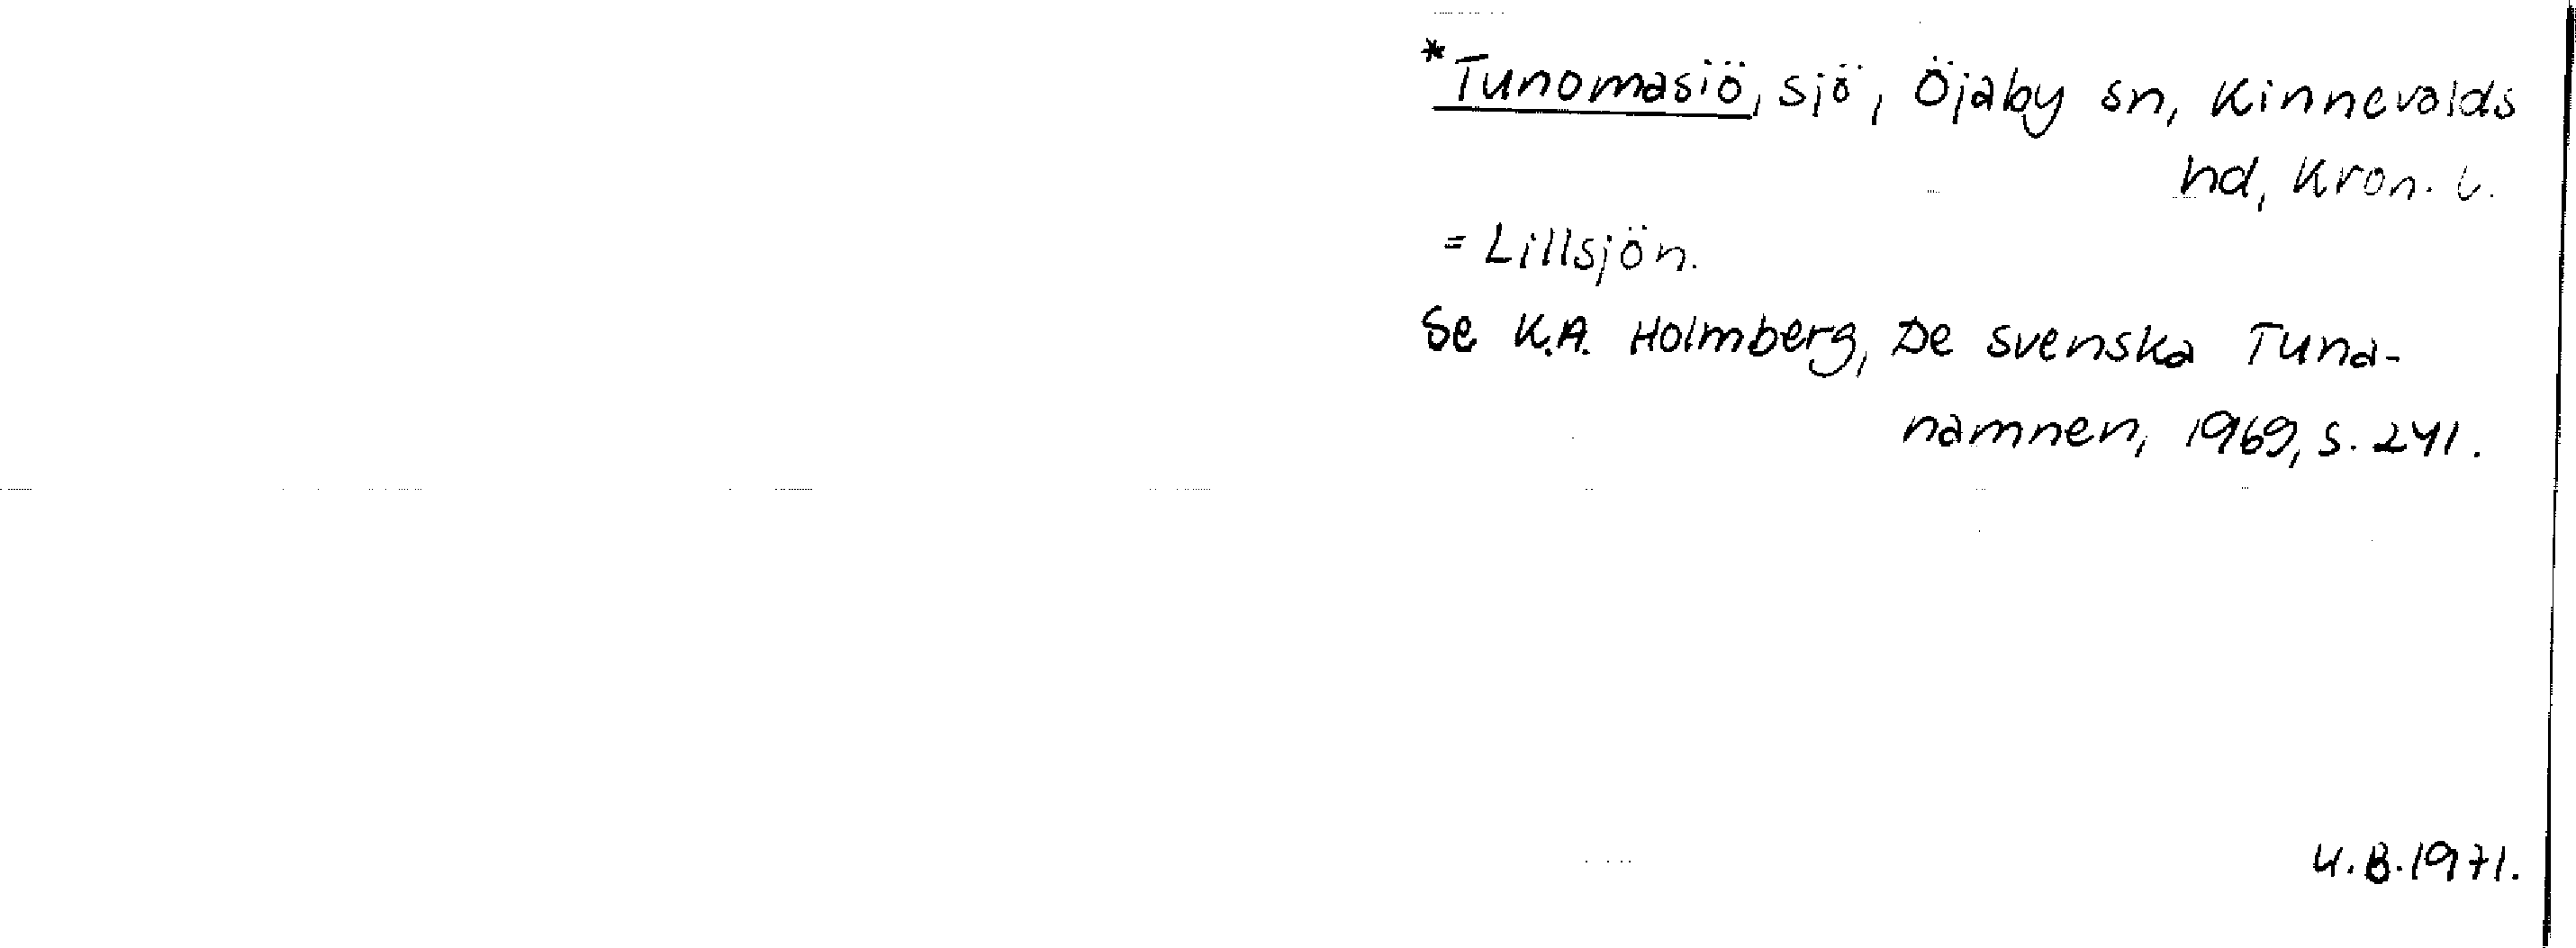 *Tunomasiö, sjö, Öjaby sn, Kinnevalds
hd, Kron. l.
= Lillsjön.
Se K.A. Holmberg, De svenska Tuna-
namnen, 1969, s. 241.
U.B.1971.